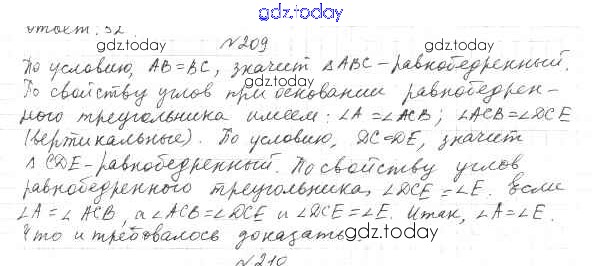 Ответ: 52
gdz.today
gdz.today
№209
gdz.today
По условию, AB=BC, значит ΔABC-равнобедренный.
По свойству углов при основании равнобедрен-
ного треугольника имеем: ∠A=∠ACB; ∠ACB=∠DCE
(вертикальные). По условию, DC=DE, значит
Δ CDE-равнобедренный. По свойству углов
равнобедренного треугольника, ∠DCE=∠E. Если
∠A=∠ ACB, а ∠ACB=∠DCE и ∠DCE=∠E. Итак, ∠A=∠E.
Что и требовалось доказать.
gdz.today
gdz.today
№210